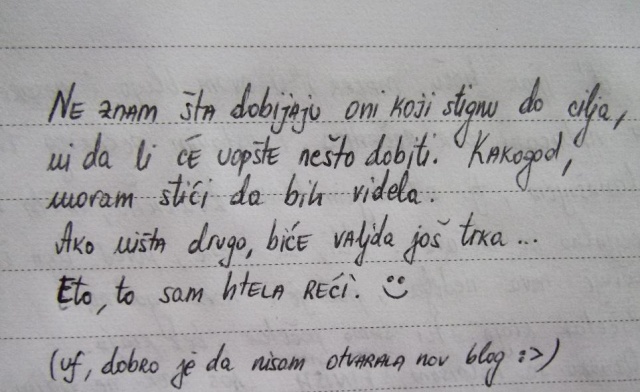 Ne znam šta dobijaju oni koji stignu do cilja,
ni da li će uopšte nešto dobiti. Kakogod,
moram stići da bih videla.
Ako ništa drugo, biće valjda još trka...
Eto, to sam htela reći. :)
(uf, dobro je da nisam otvarala nov blog :>)